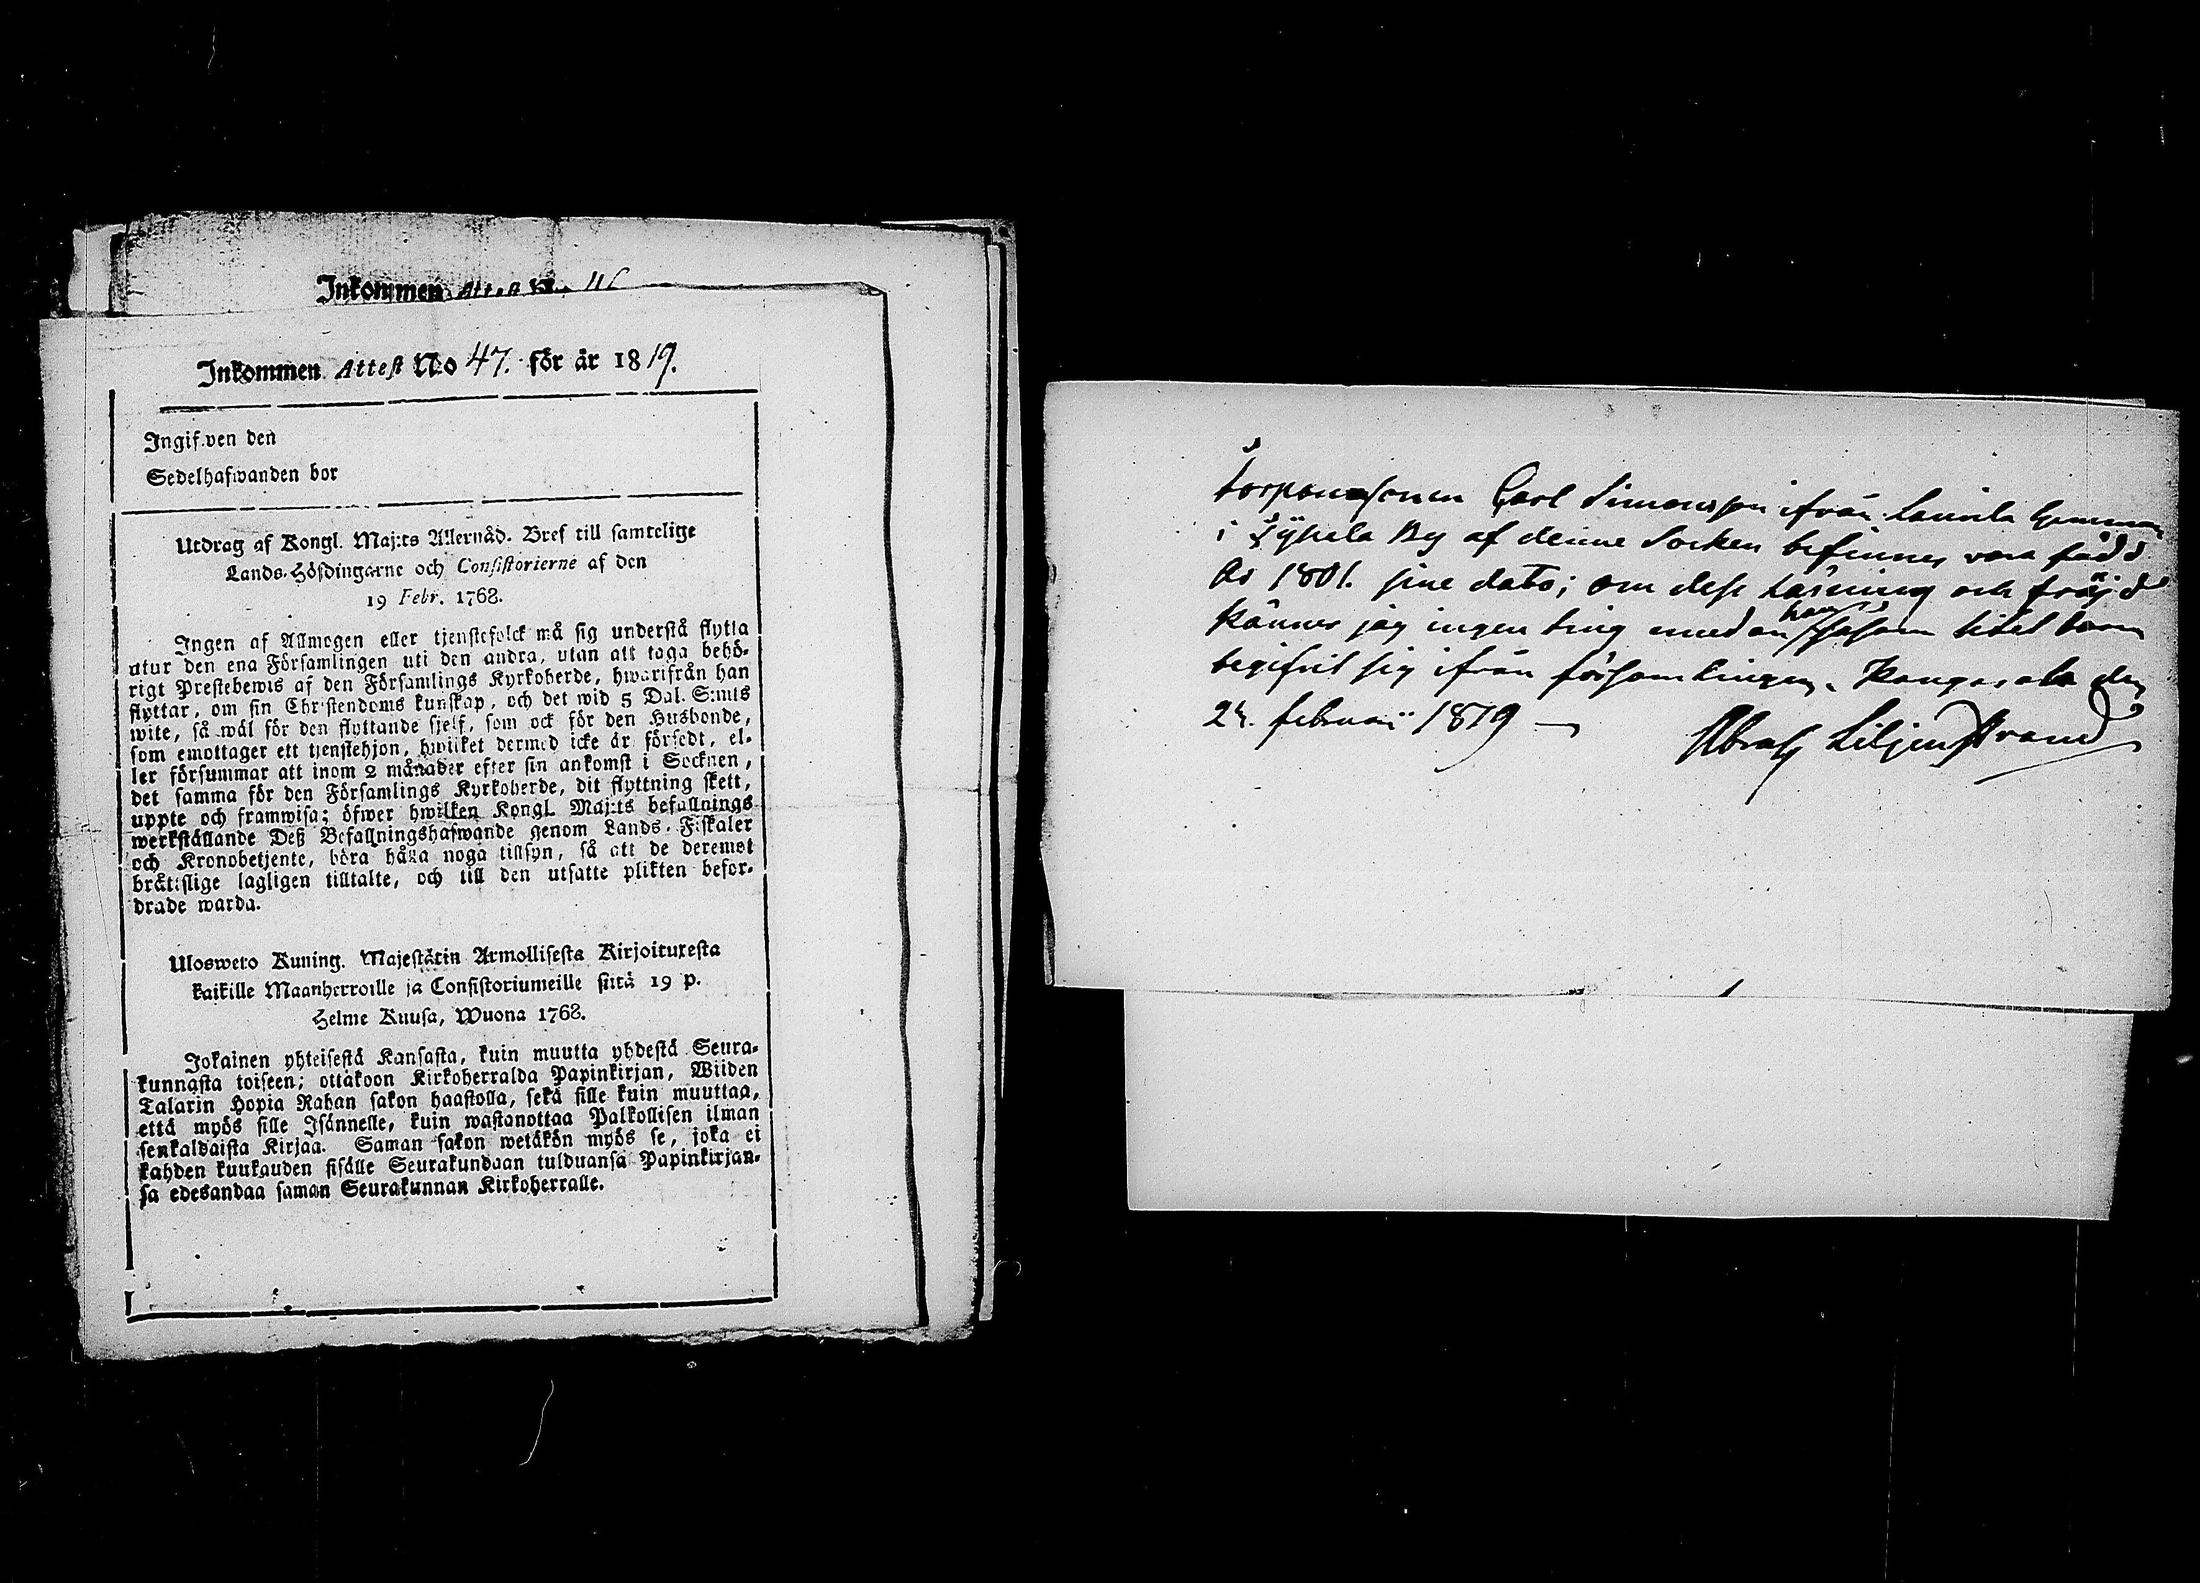 Inkommen Attest No 46
Inkommen Attest No 47. för år 1819.
Ingifven den
Sedelhafwanden bor
Utdrag af Kongl. Maj:ts Allernåd. Bref till samtelige
Lands-Höfdingarne och Consistorierne af den
19 Febr. 1768.
Ingen af Allmogen eller tjenstefolck må sig understå flytta
utur den ena Församlingen uti den andra, utan att taga behö-
rigt Prestebewis af den Församlings Kyrkoherde, hwarifrån han
flyttar, om sin Christendoms kunskap, och det wid 5 Dal. S:mts
wite, så wäl för den flyttande sjelf, som ock för den Husbonde,
som emottager ett tjenstehjon, hwilket dermed icke är försedt, el-
ler försummar att inom 2 månader efter sin ankomst i Socknen,
det samma för den Församlings Kyrkoherde, dit flyttning skett,
uppte och framwisa; öfwer hwilken Kongl. Maj:ts befallnings
werkställande Deß Befallningshafwande genom Lands-Fiskaler
och Kronobetjente, böra hålla noga tillsyn, så att de deremot
bråtislige lagligen tilltalte, och till den utsatte plikten befor-
drade warda.
Ulosweto Kuning. Majestätin Armollisesta Kirjoituxesta
kaikille Maanherroille ja Consistoriumeille siitä 19 p.
Helme Kuusa, Wuona 1768.
Jokainen yhteisestä Kansasta, kuin muutta yhdestä Seura-
kunnasta toiseen; ottakoon Kirkoherralda Papinkirjan, Wiiden
Talarin Hopia Rahan sakon haastolla, sekä sille kuin muuttaa,
että myös sille Isännelle, kuin wastanottaa Palkollisen ilman
senkaldaista Kirjaa. Saman sakon wetäkön myös se, joka ei
kahden kuukauden sisälle Seurakundaan tulduansa Papinkirjan-
sa edesandaa saman Seurakunnan Kirkoherralle.
Torparesonen Carl Simonsson ifrån Laurila
i By af denne Socken befinnes vara född
Ao 1801. sine dato; om dess Läsning och fräjd
känner jag ingen ting medan han såsom litet barn
begifvit sig ifrån församlingen. Kangasala den
24. februarii 1819
Abrah Liljenstrand